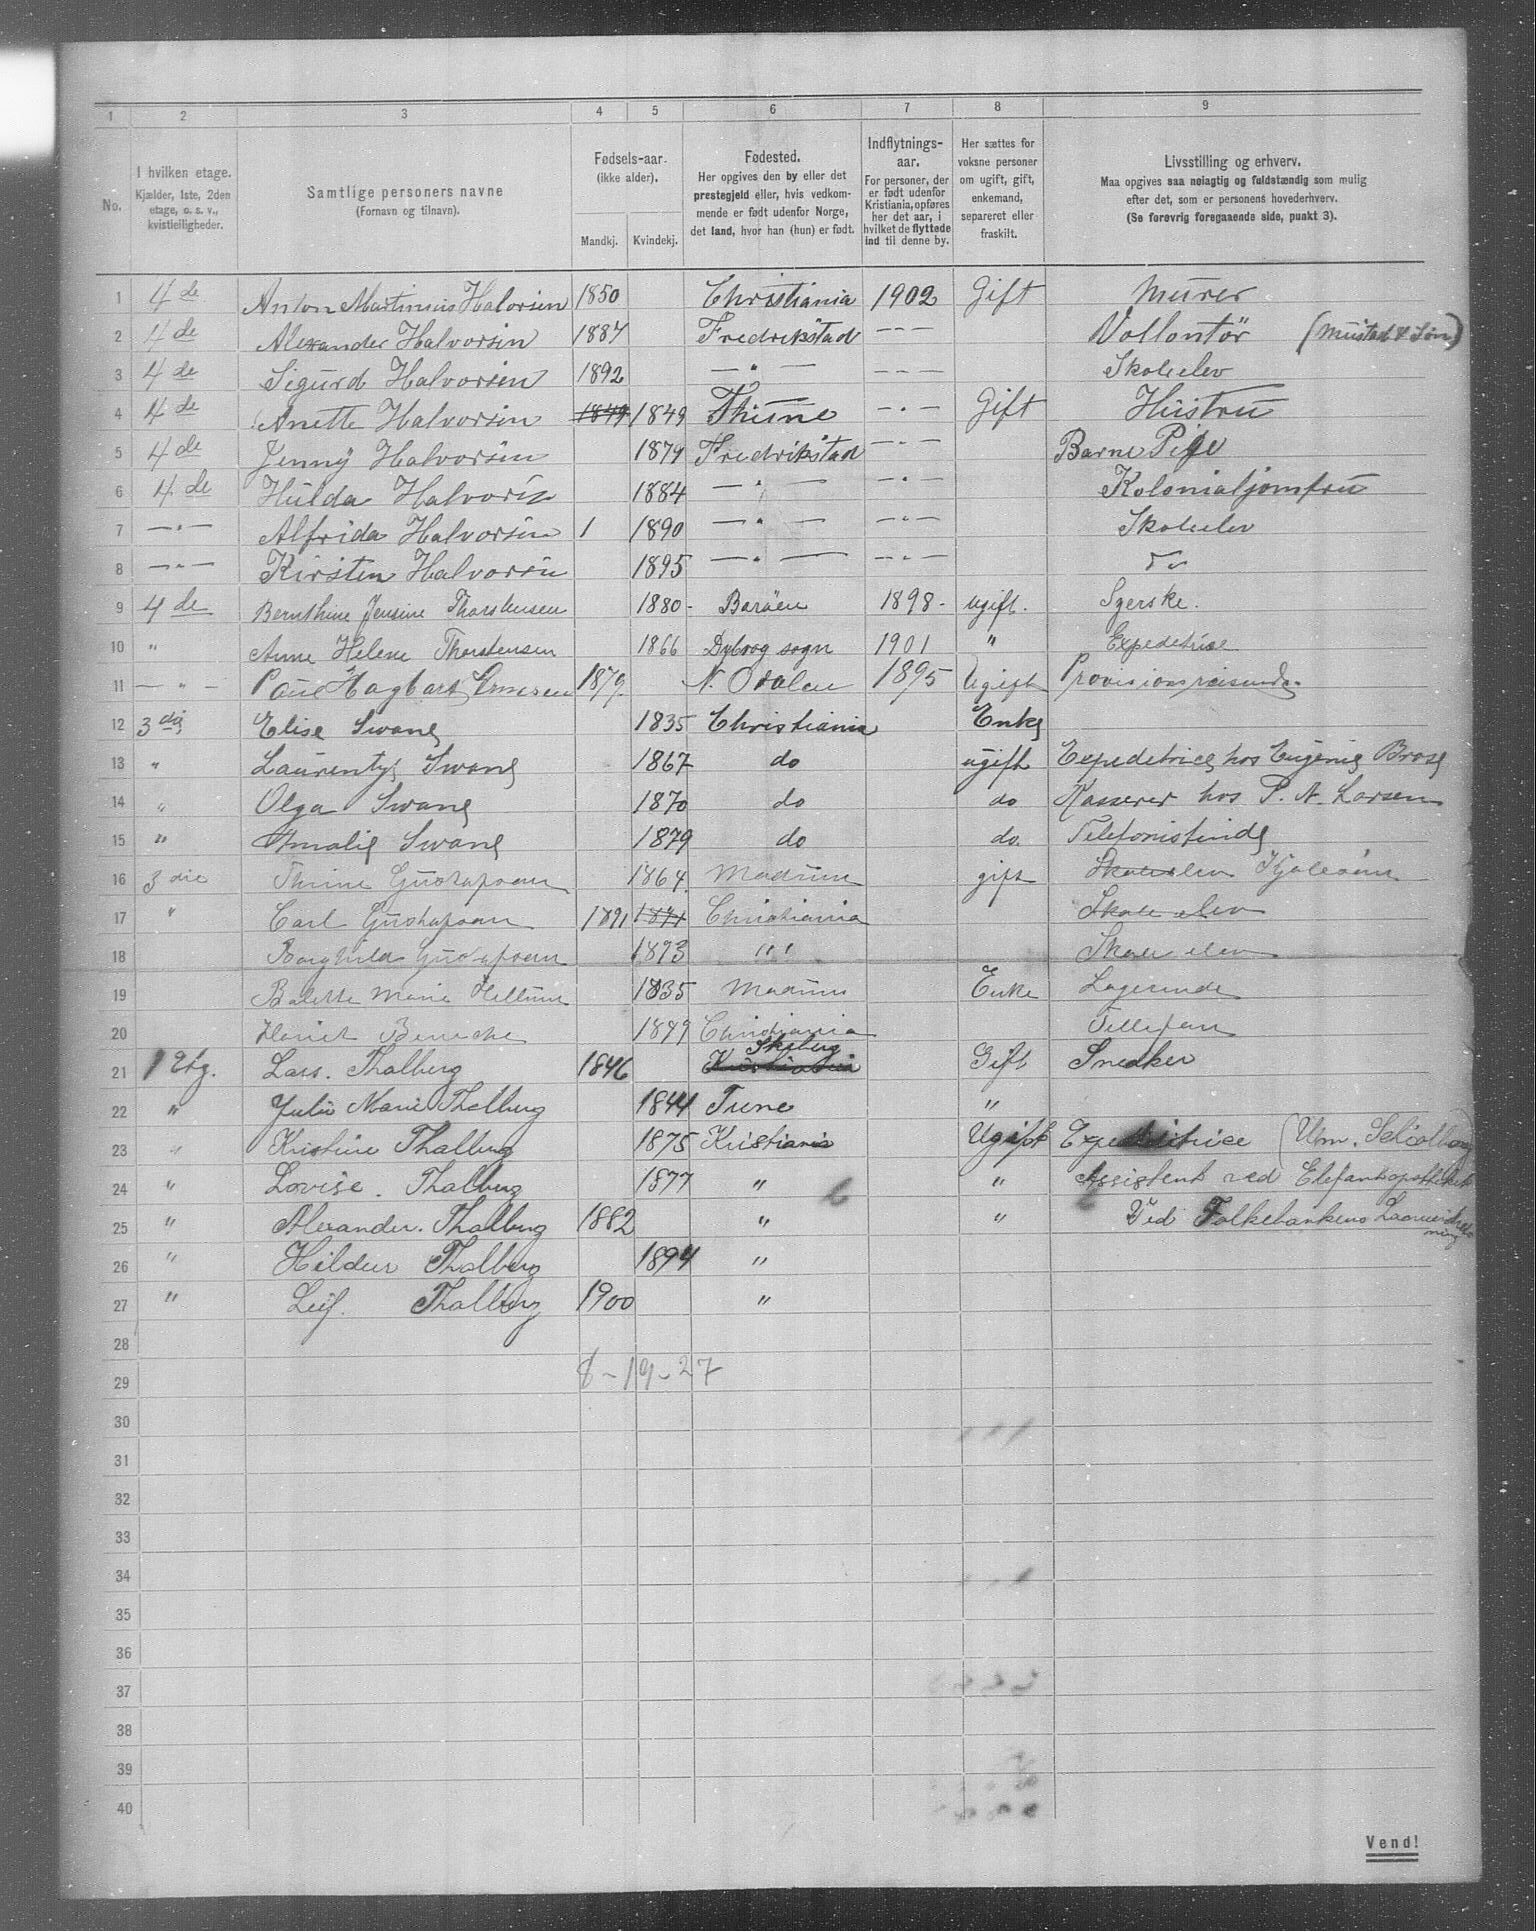 1 2 3 4 5 6 7 8 9
No. I hvilken etage. Kjælder, 1ste, 2den etage, o. s. v., kvistleiligheder. Samtlige personers navne (Fornavn og tilnavn). Fødsels-aar. (ikke alder). Mandkj. Kvindekj. Fødested. Her opgives den by eller det prestegjeld eller, hvis vedkommende er født udenfor Norge, det land, hvor han (hun) er født. Indflytnings-aar. For personer, der er født udenfor Kristiania, opføres her det aar, i hvilket de flyttede ind til denne by. Her sættes for voksne personer om ugift, gift, enkemand, separeret eller fraskilt. Livsstilling og erhverv. Maa opgives saa nøiagtig og fuldstændig som mulig efter det, som er personens hovederhverv. (Se forøvrig foregaaende side, punkt 3).
1 4de Anton Martinius Halvorsen 1850 Christiania 1902 Gift Murer
2 4de Alexander Halvorsen 1887 Fredrikstad — — — Vollontör (Mustad & Søn)
3 4de Sigurd Halvorsen 1892 — " — — " — Skoleelev
4 4de Anette Halvorsen 1849 1849 Thune — " — Gift Hustru
5 4de Jenny Halvorsen 1879 Fredrikstad — " — Barne Pige
6 4de Hulda Halvorsen 1884 — " — — " — Kolonialjomfru
7 — " — Alfrida Halvorsen 1 1890 — " — — " — Skoleelev
8 — " — Kirsten Halvorsen 1895 — " — — " —
9 4de Bernthine Jensine Thorstensen 1880 - Barøen 1898 - ugift. Syerske.
10 " Anne Helene Thorstensen 1866 Dybvog sogn 1901 " Expeditrise
11 — " — Paul Hagbart 1879. N. Odalen 1895 Ugift Provisionsreisende.
12 3die Elise Swane 1835 Christiania Enke
13 " Laurentze Swane 1867 do ugift Expeditrice hos Eugenie
14 " Olga Swane 1870 do do Kasserer hos P. A. Larsen
15 " Amalie Swane 1879 do do. Telefonistinde
16 3die Thrine Gustafsen 1864. Modum gift Skoleelev
17 " Carl Gustafsen 1891 1891 Christiania Skole elev
18 Borghild Gustafsen 1893 " " Skole elev
19 Bolette Marie Hellum 1835 Modum Enke Logerende
20 1889 Christiania
21 1 Etg. Lars. Thalberg 1846 Kristiania Gift Snedker
22 " Julie Marie Thalberg 1844 Tune "
23 " Kristine Thalberg 1875 Kristiania Ugift Expeditrice
24 " Lovise. Thalberg 1877 " " Assistent ved Elefantapotheket
25 " Alexander. Thalberg 1882 " " Ved Folkebankens
26 " Hildur Thalberg 1894 "
27 " Leif. Thalberg 1900 "
28
29 8 - 19 - 27
30
31
32
33
34
35
36
37
38
39
40
Vend!